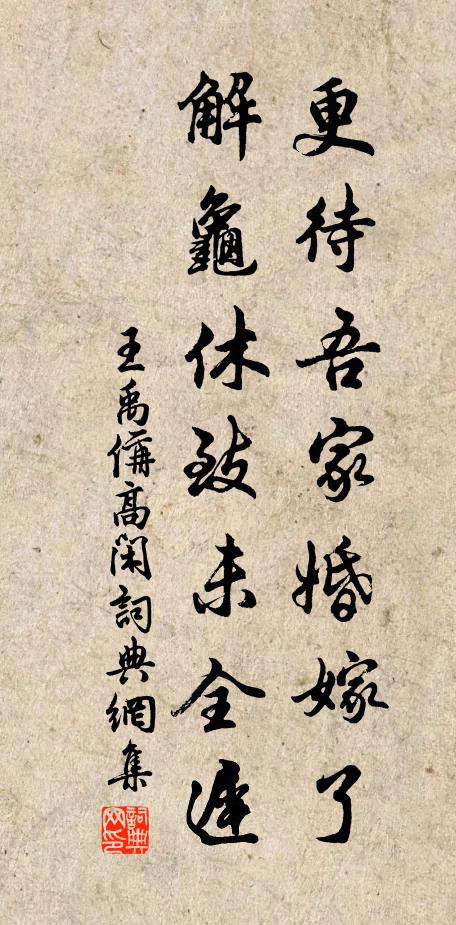 更待吾家婚嫁了
解龜休致未全遲
王禹偁高閑詞典網集
詞典
网印